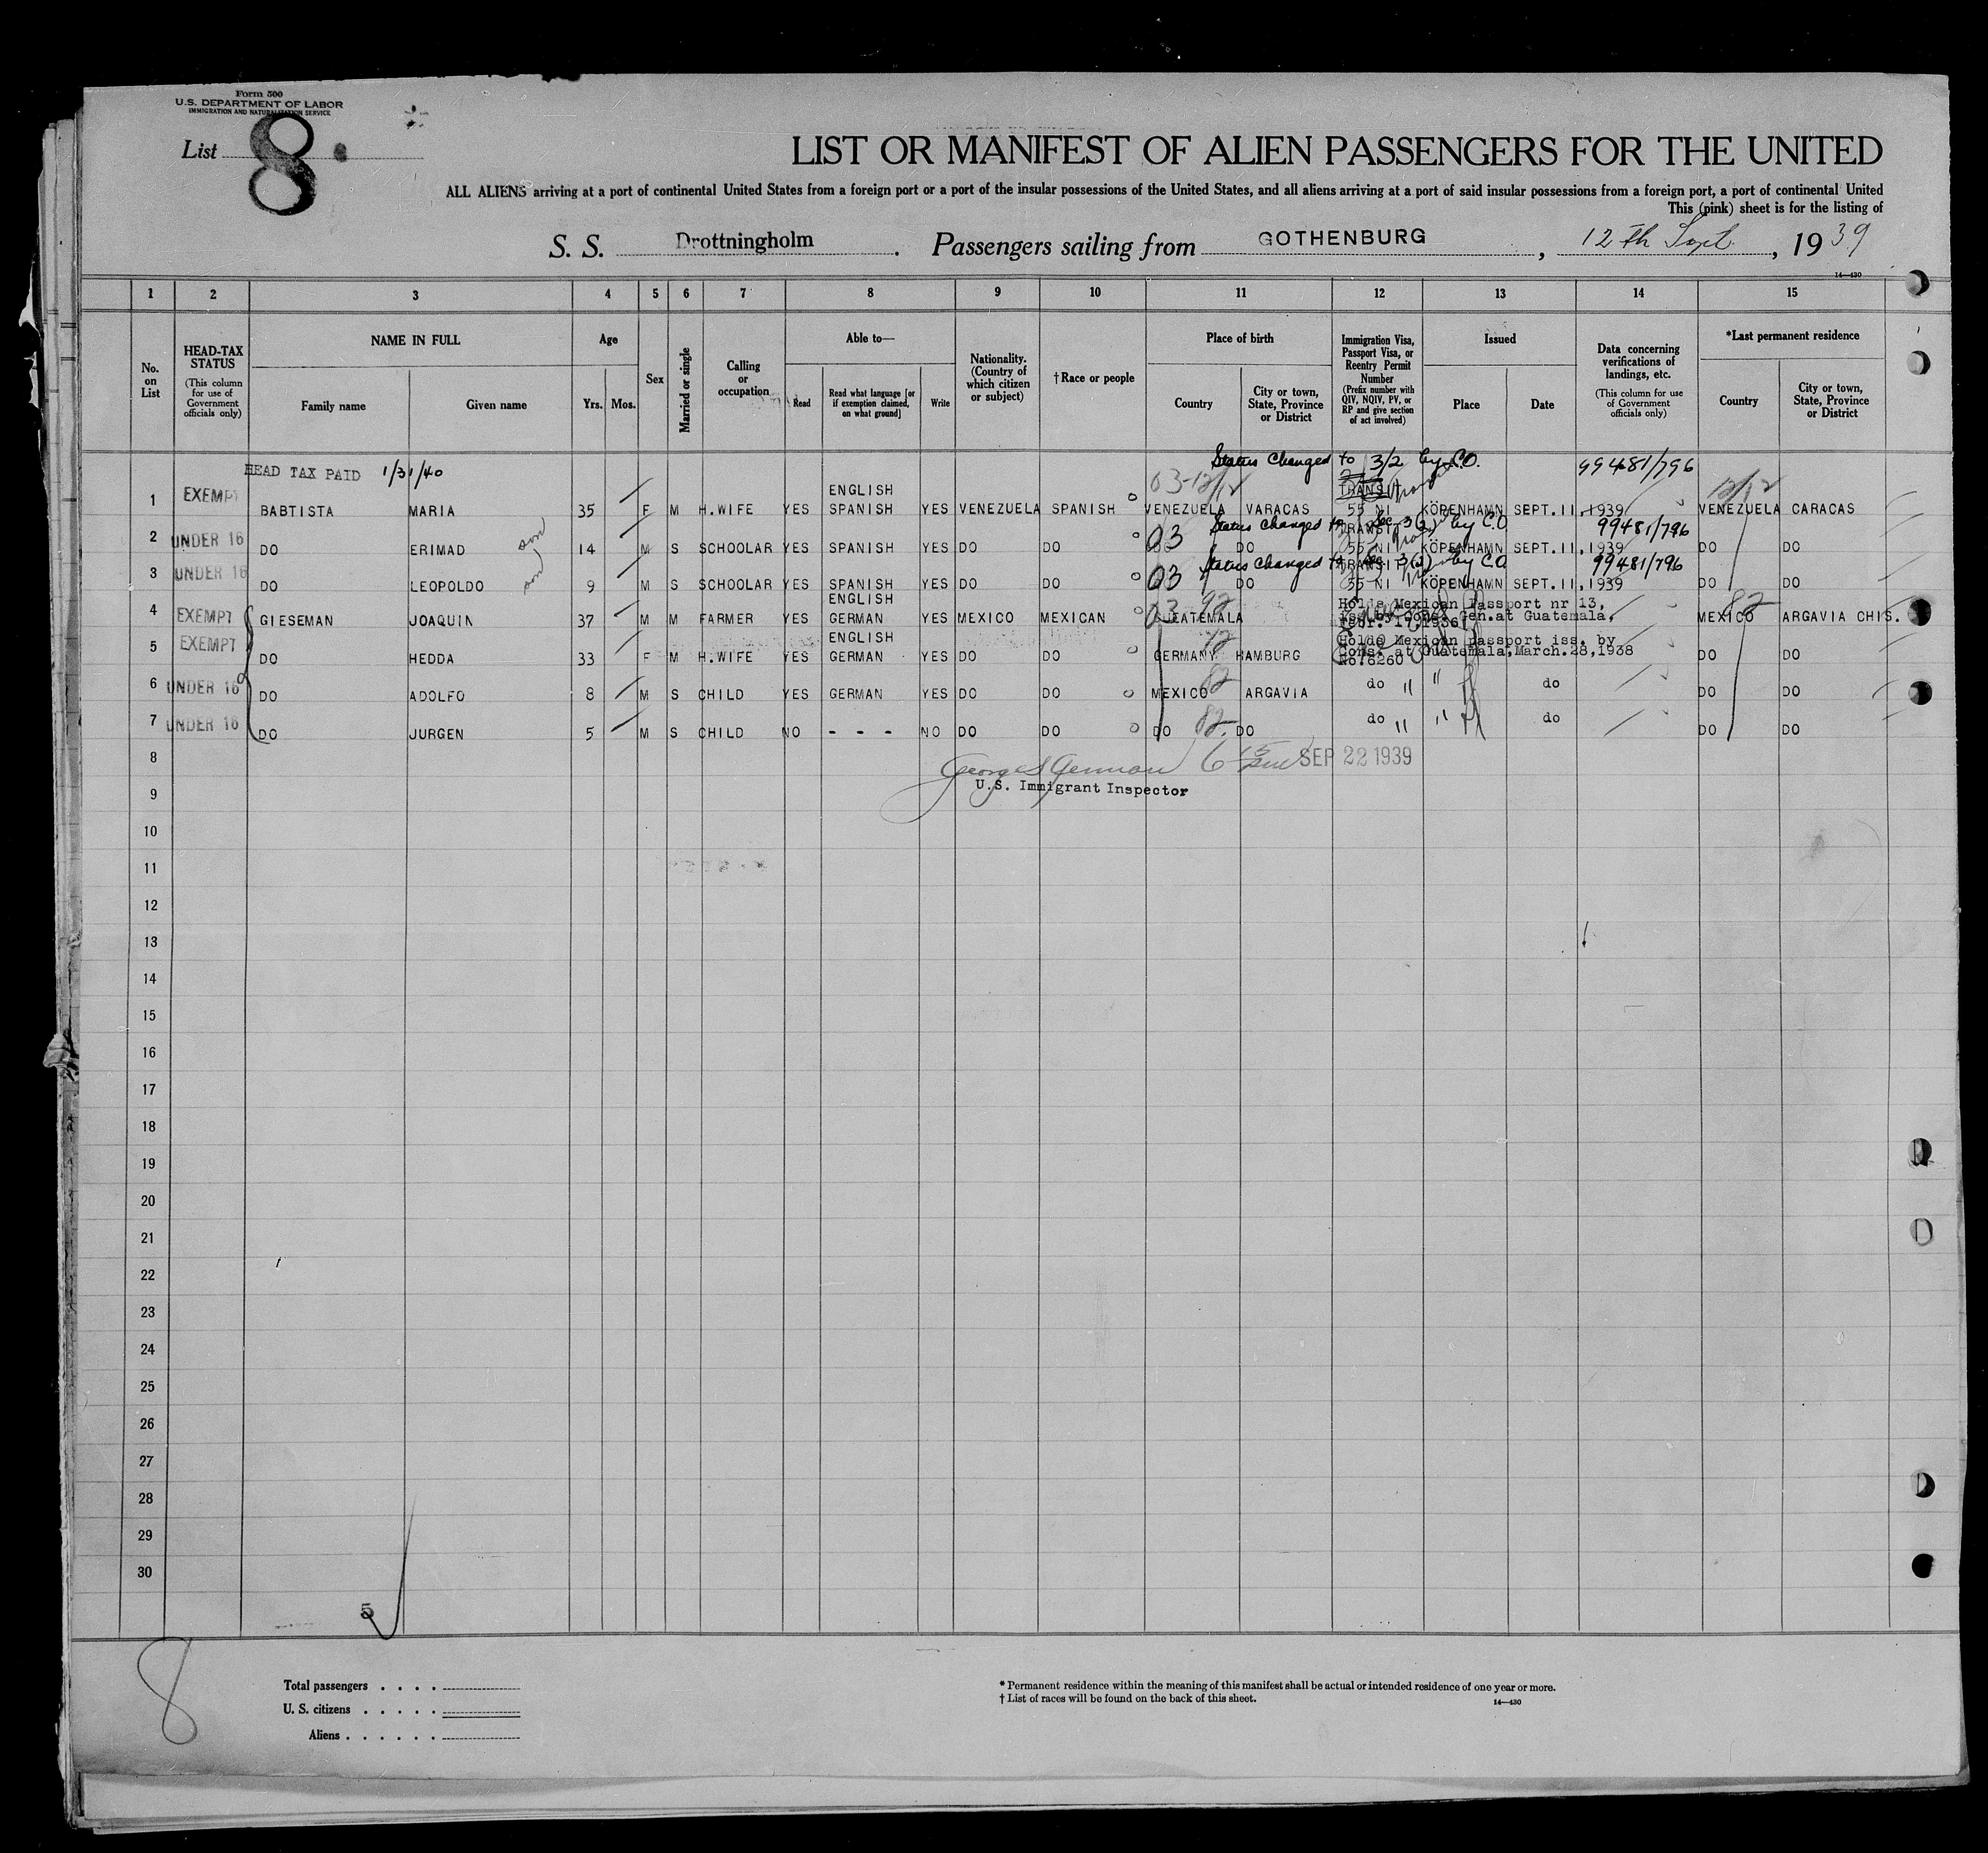 Form 500
U.S. DEPARTMENT OF LABOR
IMMIGRATION AND NATURALIZATION SERVICE
List 8
LIST OR MANIFEST OF ALIEN PASSENGERS FOR THE UNITED
ALL ALIENS arriving at a port of continental United States from a foreign port or a port of the insular possessions of the United States, and all aliens arriving at a port of said insular possessions from a foreign port, a port of continental United
This (pink) sheet is for the listing of
S. S. Drottningholm. Passengers sailing from GOTHENBURG, 12th Sept., 1939
14—430
1 2 3 4 5 6 7 8 9 10 11 12 13 14 15
No. on List
HEAD-TAX STATUS
(This column for use of Government officials only)
NAME IN FULL
Family name
Given name
Age
Yrs. Mos.
Sex
Married or single
Calling or occupation
Able to—
Read
Read what language [or if exemption claimed, on what ground]
Write
Nationality. (Country of which citizen or subject)
†Race or people
Place of birth
Country
City or town, State, Province or District
Immigration Visa, Passport Visa, or Reentry Permit Number
(Prefix number with QIV, NQIV, PV, or RP and give section of act involved)
Issued
Place
Date
Data concerning verifications of landings, etc.
(This column for use of Government officials only)
*Last permanent residence
Country
City or town, State, Province or District
HEAD TAX PAID 1/31/40 Status Changed to 3/2 by C.O. 99481/796
03-12/12 TRANSIT 12/12
ENGLISH
1 EXEMPT BABTISTA MARIA 35 F M H.WIFE YES SPANISH YES VENEZUELA SPANISH VENEZUELA VARACAS 55 NI KÖPENHAMN SEPT.11,1939 VENEZUELA CARACAS
03 Status changed to Sec 3(2) by C.O 99481/796
TRANSIT
2 UNDER 16 DO ERIMAD son 14 M S SCHOOLAR YES SPANISH YES DO DO DO 55 NI KÖPENHAMN SEPT.11,1939 DO DO
03 Status changed to Sec 3(2) by C.O 99481/796
TRANSIT
3 UNDER 16 DO LEOPOLDO son 9 M S SCHOOLAR YES SPANISH YES DO DO DO 55 NI KÖPENHAMN SEPT.11,1939 DO DO
ENGLISH
03 92 Holds Mexican Passport nr 13, 82
4 EXEMPT GIESEMAN JOAQUIN 37 M M FARMER YES GERMAN YES MEXICO MEXICAN GUATEMALA iss. by Cons. Gen. at Guatemala, MEXICO ARGAVIA CHIS.
Febr. 17, 1936
ENGLISH
12 Holds Mexican passport iss. by
5 EXEMPT DO HEDDA 33 F M H.WIFE YES GERMAN YES DO DO GERMANY HAMBURG Cons. at Guatemala, March.28,1938 DO DO
No.6260
6 UNDER 16 DO ADOLFO 8 M S CHILD YES GERMAN YES DO DO MEXICO 82 ARGAVIA do " " do DO DO
7 UNDER 16 DO JURGEN 5 M S CHILD NO - - - NO DO DO DO 82 DO do " " do DO DO
8 George German 6 15 pm SEP 22 1939
U.S. Immigrant Inspector
9
10
11
12
13
14
15
16
17
18
19
20
21
22
23
24
25
26
27
28
29
30
5
8
Total passengers . . . .
U. S. citizens . . . . .
Aliens . . . . . .
* Permanent residence within the meaning of this manifest shall be actual or intended residence of one year or more.
† List of races will be found on the back of this sheet.
14—430